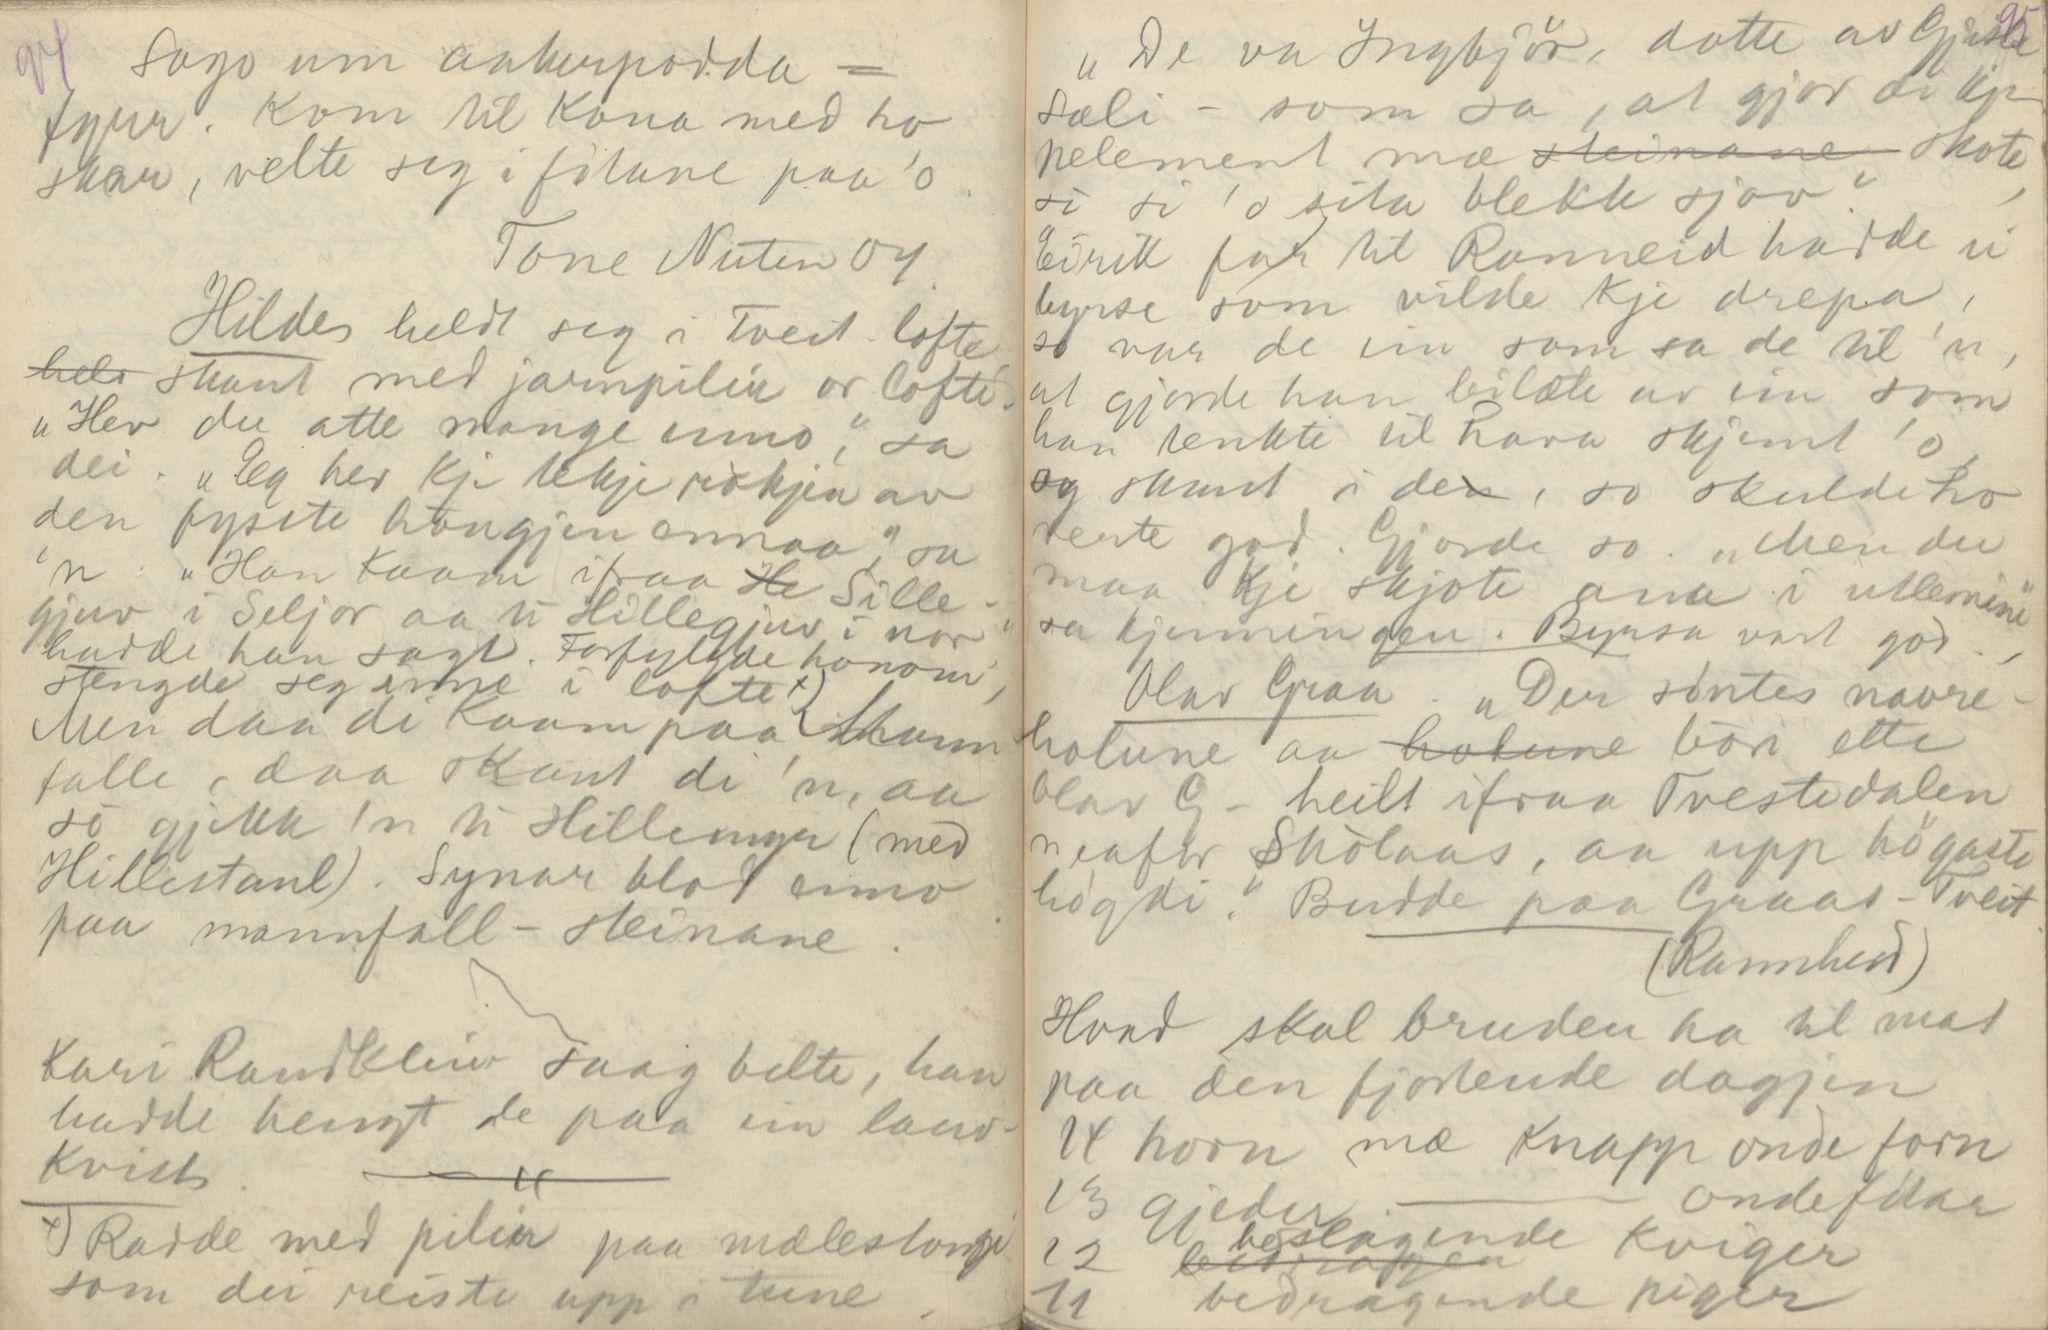 94
Sogo um aakerpodda =
fyrr. Kom til Kona med ho
skar, velte seg i fótane paa 'o.
Tone Nuten 04.
Hildes heldt seg i Tveit-lofte
held skaut med jarnpilir or loftè.
"Hev du atte mange enno," sa
dei. "Eg hev kje tekje rókjen av
den fyste haugjen ennaa," sa
'n. "Han kaam ifraa He Sille-
gjuv i Seljor aa ti Hillegjuv i nor"
hadde han sagt. Forfylgde honom,
stengde seg inne i lofte x)
Men daa di kaam paa Mann
falle, daa skaut di 'n, aa
só gjekk 'n ti Hillemyr (med
Hillestaul). Synar blod enno
paa mannfall-steinane.
Kari Raudkleiv saag belte, han
hadde hengt de paa ein lauv-
kvist.
x) Radde med pilir paa mælestongi
som dei reiste upp i tune.
95
"De va Ingbjör, dotte av Gjusle
Sæli - som sa, at gjor di
pelement mæ steinane skote,
só si 'o sita blekk sjøv"
Eirik far til Ranneid hadde ei
byrse som vilde kje drepa,
so var de ein som sa de til 'n,
at gjorde han bilæte av ein som
han tenkte til hava skjemt 'o,
og skaut i den, so skulde ho
verte god. Gjorde so. "Men du
maa kje skjote ana i utlemine"
sa kjerringen. Byrsa vart god.
Olav Graa. "Der sóntes navre-
holune aa holune bóri ette
Olav G - heilt ifraa Tvestedalen
neafor Skólaas, aa upp högaste
högdi." Budde paa Graas-Tveit.
(Rannheid)
Hvad skal bruden ha til mat
paa den fjortende dagjen
14 horn mæ knapp onde forn
13 gjeder ——— ondefilar
12 bedragen beslagende kviger
11 bedragende piger